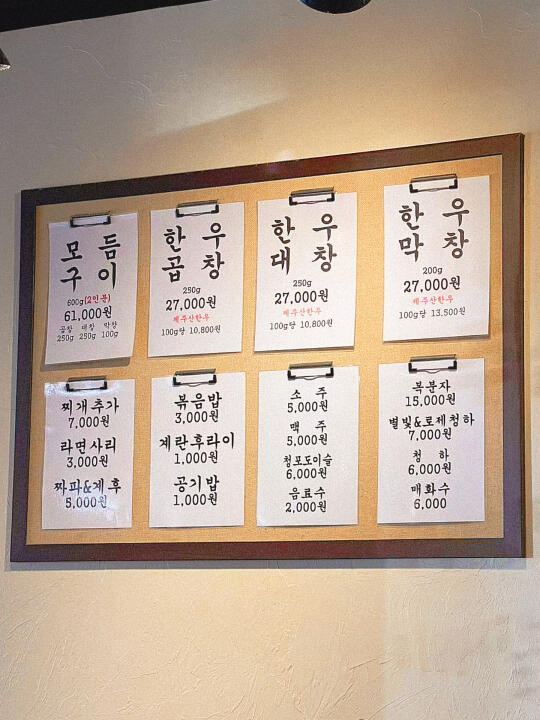 모 듬
구 이
600g(2인분)
61,000원
곱창 대창 막창
250g 250g 100g
한 우
곱 창
250g
27,000원
제주산한우
100g당 10,800원
한 우
대 창
250g
27,000원
제주산한우
100g당 10,800원
한 우
막 창
200g
27,000원
제주산한우
100g당 13,500원
찌개추가
7,000원
라면사리
3,000원
짜파&계후
5,000원
볶음밥
3,000원
계란후라이
1,000원
공기밥
1,000원
소 주
5,000원
맥 주
5,000원
청포도이슬
6,000원
음료수
2,000원
복분자
15,000원
별빛&로제청하
7,000원
청 하
6,000원
매화수
6,000